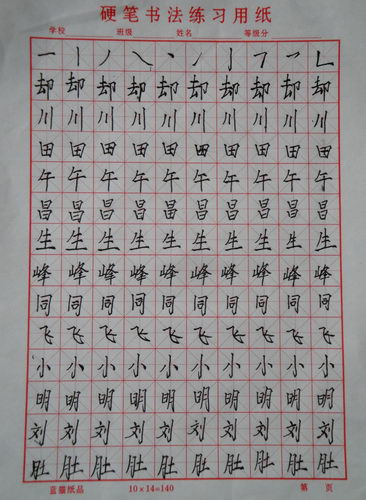 硬笔书法练习用纸
学校 班级 姓名 等级分
一 丨 丿 ㇏ 丶 丿 亅 ㇇ 丿 乚
却 却 却 却 却 却 却 却 却 却
川 川 川 川 川 川 川 川 川 川
田 田 田 田 田 田 田 田 田 田
午 午 午 午 午 午 午 午 午 午
昌 昌 昌 昌 昌 昌 昌 昌 昌 昌
生 生 生 生 生 生 生 生 生 生
峰 峰 峰 峰 峰 峰 峰 峰 峰 峰
同 同 同 同 同 同 同 同 同 同
飞 飞 飞 飞 飞 飞 飞 飞 飞 飞
小 小 小 小 小 小 小 小 小 小
明 明 明 明 明 明 明 明 明 明
刘 刘 刘 刘 刘 刘 刘 刘 刘 刘
肚 肚 肚 肚 肚 肚 肚 肚 肚 肚
蓝猫纸品 10×14=140 第 页